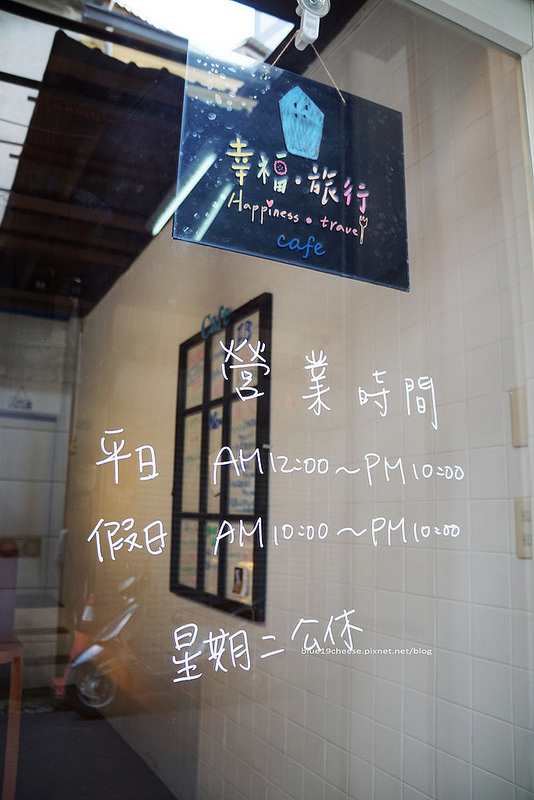 幸福·旅行
Happiness • travel
cafe
Cafe
營業時間
平日 AM12:00~PM10:00
假日 AM10:00~PM10:00
星期二公休
blue19cheese.pixnet.net/blog